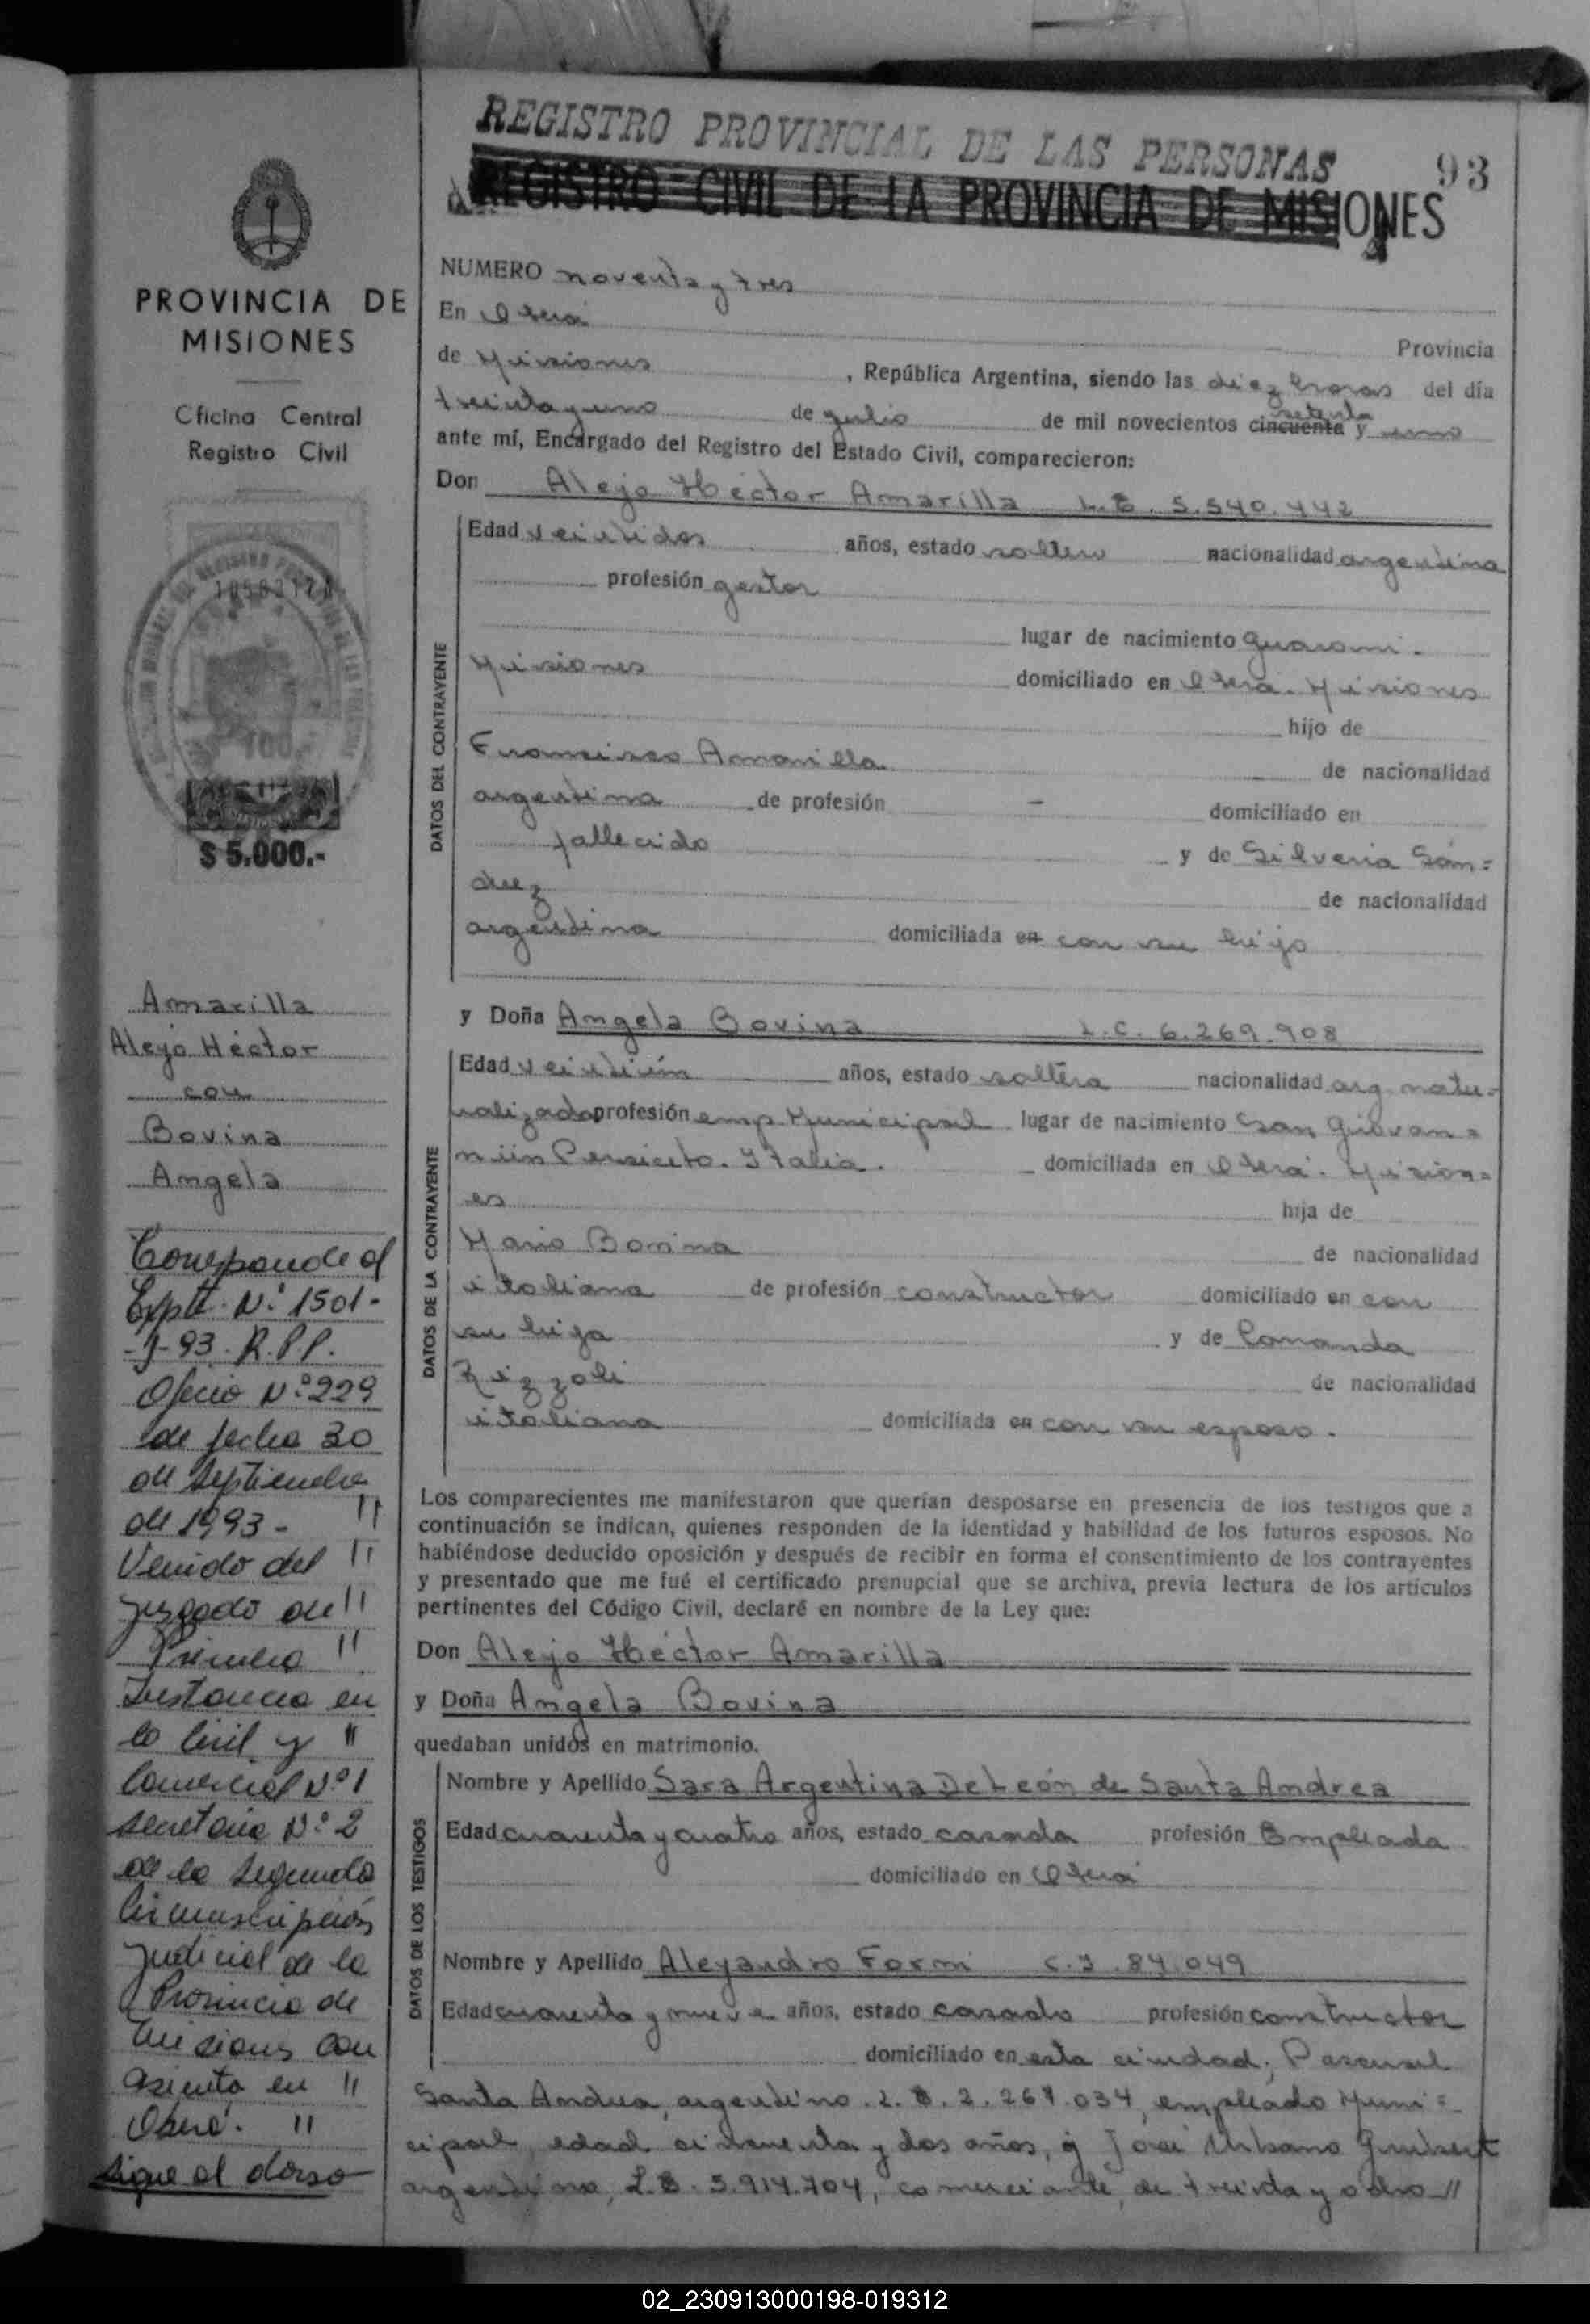 REGISTRO PROVINCIAL DE LAS PERSONAS
93
REGISTRO CIVIL DE LA PROVINCIA DE MISIONES
PROVINCIA DE
MISIONES
Oficina Central
Registro Civil
$ 5.000.-
Amarilla
Alejo Héctor
con
Bovina
Angela
Corresponde al
Expte. N° 1501-
-J-93. R.P.P.
Oficio N° 229
de fecha 30
de septiembre
de 1993 - "
Venido del "
juzgado de "
Primera "
Instancia en
lo Civil y "
Comercial N° 1
secretaria N° 2
de la segunda
Circunscripción
judicial de la
Provincia de
Misiones con
asiento en "
Oberá. "
sigue al dorso
NUMERO noventa y tres
En Oberá Provincia
de Misiones, República Argentina, siendo las diez horas del día
treinta y uno de julio de mil novecientos cincuenta setenta y uno
ante mí, Encargado del Registro del Estado Civil, comparecieron:
Don Alejo Héctor Amarilla L.E. 5.540.442
DATOS DEL CONTRAYENTE
Edad veintidos años, estado soltero nacionalidad argentina
profesión gestor
lugar de nacimiento Guaraní.
Misiones domiciliado en Oberá. Misiones
hijo de
Francisco Amarilla de nacionalidad
argentina de profesión - domiciliado en
fallecido y de Silveria Sán=
chez de nacionalidad
argentina domiciliada en con su hijo
y Doña Angela Bovina L.C. 6.269.908
DATOS DE LA CONTRAYENTE
Edad veintiún años, estado soltera nacionalidad arg. natu-
ralizada profesión emp. Municipal lugar de nacimiento San Giovan=
ni in Persiceto. Italia. domiciliada en Oberá. Mision=
es hija de
Mario Bovina de nacionalidad
italiana de profesión constructor domiciliado en con
su hija y de Comanda
Rizzoli de nacionalidad
italiana domiciliada en con su esposo.
Los comparecientes me manifestaron que querían desposarse en presencia de los testigos que a
continuación se indican, quienes responden de la identidad y habilidad de los futuros esposos. No
habiéndose deducido oposición y después de recibir en forma el consentimiento de los contrayentes
y presentado que me fué el certificado prenupcial que se archiva, previa lectura de los artículos
pertinentes del Código Civil, declaré en nombre de la Ley que:
Don Alejo Héctor Amarilla
y Doña Angela Bovina
quedaban unidos en matrimonio.
DATOS DE LOS TESTIGOS
Nombre y Apellido Sara Argentina De León de Santa Andrea
Edad cuarenta y cuatro años, estado casada profesión Empleada
domiciliado en Oberá
Nombre y Apellido Alejandro Formi C.I. 84.049
Edad cuarenta y nueve años, estado casado profesión constructor
domiciliado en esta ciudad; Pascual
Santa Andrea, argentino. L.E. 2.269.034, empleado Muni=
cipal, edad cincuenta y dos años, y José Urbano
argentino, L.E. 5.914.704, comerciante, de treinta y ocho //
02_230913000198-019312